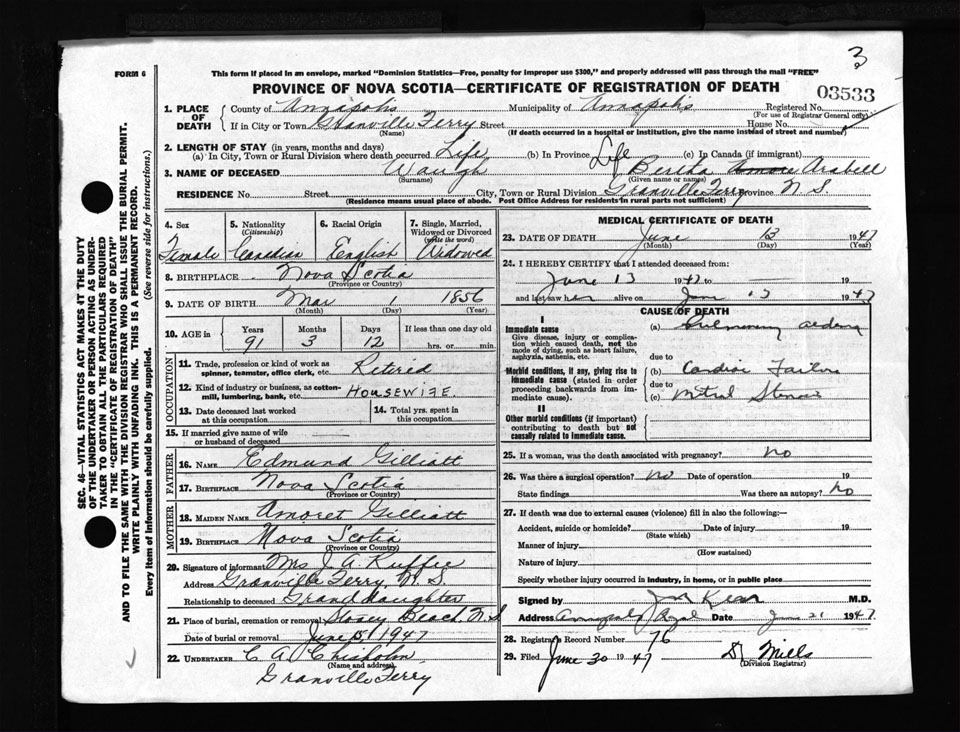 3
FORM 6
This form if placed in an envelope, marked "Dominion Statistics—Free, penalty for improper use $300," and properly addressed will pass through the mail "FREE"
PROVINCE OF NOVA SCOTIA—CERTIFICATE OF REGISTRATION OF DEATH
03533
1. PLACE OF DEATH
County of Annapolis Municipality of Annapolis Registered No.
(For use of Registrar General only)
If in City or Town Granville Ferry Street House No.
(Name) (If death occurred in a hospital or institution, give the name instead of street and number)
2. LENGTH OF STAY (in years, months and days)
(a) In City, Town or Rural Division where death occurred Life (b) In Province Life (c) In Canada (if immigrant)
3. NAME OF DECEASED Waugh Bertha Arabell
(Surname) (Given name or names)
RESIDENCE No. Street City, Town or Rural Division Granville Ferry Province N S.
(Residence means usual place of abode. Post Office Address for residents in rural parts not sufficient)
4. Sex
Female
5. Nationality
(Citizenship)
Canadian
6. Racial Origin
English
7. Single, Married, Widowed or Divorced
(write the word)
Widowed
8. BIRTHPLACE Nova Scotia
(Province or Country)
9. DATE OF BIRTH Mar 1 1856
(Month) (Day) (Year)
10. AGE in Years Months Days If less than one day old
91 3 12 hrs. or min.
OCCUPATION
11. Trade, profession or kind of work as spinner, teamster, office clerk, etc. Retired
12. Kind of industry or business, as cotton-mill, lumbering, bank, etc. HOUSEWIFE.
13. Date deceased last worked at this occupation
14. Total yrs. spent in this occupation
15. If married give name of wife or husband of deceased
FATHER
16. NAME Edmund Gilliatt
17. BIRTHPLACE Nova Scotia
(Province or Country)
MOTHER
18. MAIDEN NAME Amoret Gilliatt
19. BIRTHPLACE Nova Scotia
(Province or Country)
20. Signature of informant Mrs J. A. Ruffee
Address Granville Ferry, N. S.
Relationship to deceased Granddaughter
21. Place of burial, cremation or removal Beach N S
Date of burial or removal June 15 1947
22. UNDERTAKER C A Chisholm
(Name and address)
Granville Ferry
MEDICAL CERTIFICATE OF DEATH
23. DATE OF DEATH June 13 1947
(Month) (Day) (Year)
24. I HEREBY CERTIFY that I attended deceased from:
June 13 1947 to 19
and last saw her alive on June 13 1947
CAUSE OF DEATH
I
Immediate cause
Give disease, injury or complication which caused death, not the mode of dying, such as heart failure, asphyxia, asthenia, etc.
(a) Pulmonary aedema
due to
Morbid conditions, if any, giving rise to immediate cause (stated in order proceeding backwards from immediate cause).
(b) Cardiac Failure
due to
(c) Mitral Stenosis
II
Other morbid conditions (if important) contributing to death but not causally related to immediate cause.
25. If a woman, was the death associated with pregnancy? no
26. Was there a surgical operation? no Date of operation 19
State findings Was there an autopsy? no
27. If death was due to external causes (violence) fill in also the following:—
Accident, suicide or homicide? Date of injury 19
(State which)
Manner of injury
(How sustained)
Nature of injury
Specify whether injury occurred in industry, in home, or in public place
Signed by M.D.
Address Annapolis Royal Date June 21 1947
28. Registrar's Record Number 76
29. Filed June 30 1947 Mills
(Division Registrar)
SEC. 46—VITAL STATISTICS ACT MAKES IT THE DUTY
OF THE UNDERTAKER OR PERSON ACTING AS UNDER-
TAKER TO OBTAIN ALL THE PARTICULARS REQUIRED
IN THE "CERTIFICATE OF REGISTRATION OF DEATH"
AND TO FILE THE SAME WITH THE DIVISION REGISTRAR WHO SHALL ISSUE THE BURIAL PERMIT.
WRITE PLAINLY WITH UNFADING INK. THIS IS A PERMANENT RECORD.
Every item of Information should be carefully supplied. (See reverse side for instructions.)